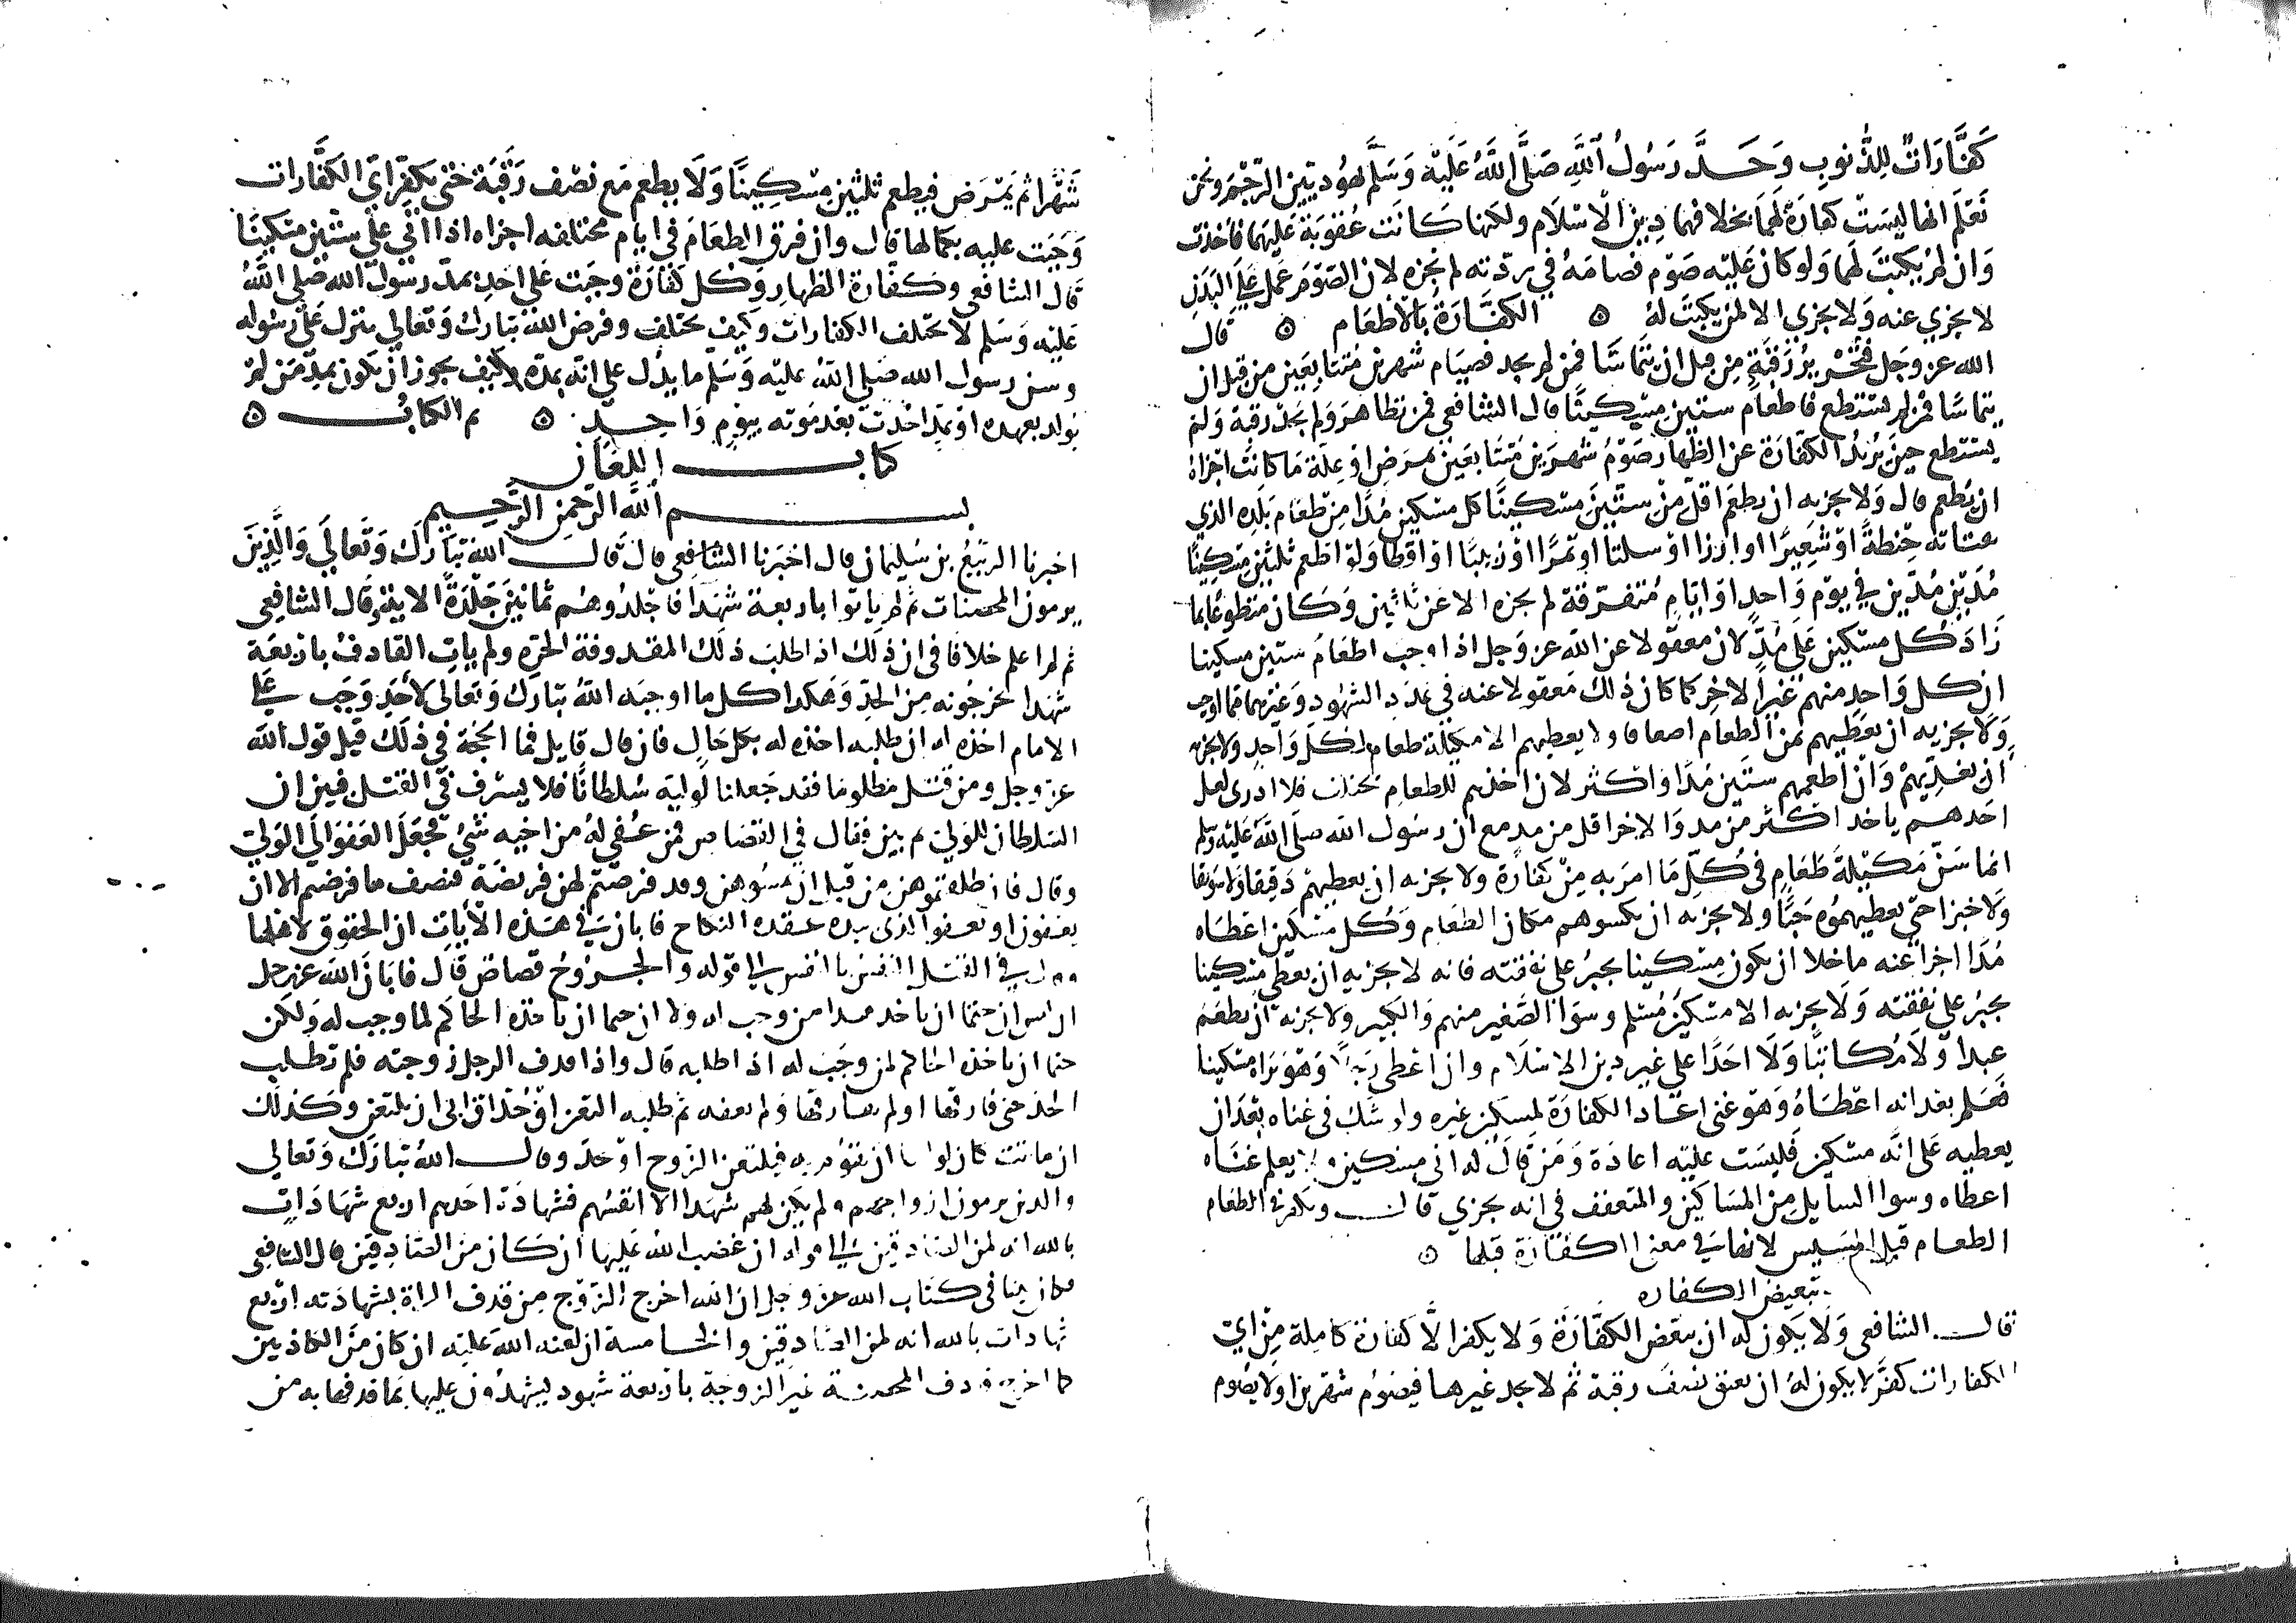 كَفَّارَاتٌ لِلذُّنوبِ وَحَدَّ رَسُولُ اللَّهِ صَلَّى اللَّهُ عَلَيْهِ وَسَلَّمَ يهُوديَّيْنِ الرَّجْمَ ونحن
نَعْلَم انها لَيسَتْ كفارَةً لَهُمَا بخلافهما دِينَ الْاسْلَام ولكنها كَانَت عُقوبَةً عَلَيهَما فَأخذت
وَان لمْ يُكْتَبَ لَهَا وَلو كان عَلَيْه صَوْم فصامَهُ في ردّته لم يجزه لان الصَّوْمَ عَمل عَلَى البَدَنِ
لا يجزي عنه وَلا يجزي الا لمنْ يكتبَ لَهُ ۞ الكفَّارَةُ بالْأطعَام ۞ قَال
الله عز وجَل فَتَحْرِيرُ رَقَبَةٍ مِن قبل ان يتمَاسّا فمن لم يجد فصيَام شهرين مُتتابعَين من قبل ان
يتماسّا فمن لم يستطع فاطعَام ستين مِسْكينًا قال الشافعي فمن تظاهرَ وَلم يجدْ رقبة وَلمْ
يستطع حينَ يُريْدُ الكفّارَة عن الظّهار صَوْمُ شهرَين مُتتَابعَين بمرَضٍ اوْ علّة مَا كانَت اجْزَاهُ
ان يُطعم قال وَلا يجزيه ان يطعم اقلّ منْ ستّينَ مسْكينًا كل مسْكين مُدًا مِن طعَام بَلَدِه الذي
يقتاته حِنطةً اوْ شَعِيرًا او ارزا اوْ سلتا اوْ تمْرًا اوْ زبيبًا او اقطا وَلوْ اطعم ثلثين مسْكينًا
مُدَّيْنِ مُدَّيْنِ في يوْم وَاحدٍ اوْ ايَّامٍ مُتفرّقة لم يجزه الا عن ثلثين وَكَان متطوعًا بما
زَادَ كُل مسْكين عَلى مُدٍّ لان معقولا عن الله عز وَجل اذا اوجب اطعَامُ ستين مسكينا
ان كل وَاحدٍ منهم غيرُ الاخِر كما كان ذلك مَعقولا عنه في عدَد الشهُود وَغيرهما مما اوجب
وَلا يجزيه ان يعطيهم ثمن الطعام اضعافا ولا يعطيهم الا مكيلة طعام لكل وَاحدٍ ولا يجزيه
ان يغدّيهمْ وَان اطعمهم ستّين مُدًا وَاكثر لان اخذهم للطعام يختلف فلا ادرى لعل
احَدهم ياخذ اكثر من مد وَالاخر اقل من مد مع ان رسُول الله صلى الله عَليْه وسلم
انما سَنّ مَكيْلةَ طَعَامٍ في كُلّ مَا امرَ به مِنْ كفارَة ولا يجزيه ان يعطيهمْ دَقيقا ولا سَويقا
وَلا خبزا حتى يعطيهمُوه حَبًّا ولا يجزيه ان يكسوهم مكان الطعام وَكُل مسْكين اعطَاه
مُدًا اجزا عنه ما خلا ان يكون مِسْكينا يجبرُ على نفقته فانه لا يجزيه ان يعطى مسْكينا
يجبرُ على نفقته وَلا يجزيه الا مسْكينٌ مُسْلم وسوَا الصَّغير منهم وَالكَبير ولا يجزيه انْ يطعمَ
عبدًا وَلا مُكاتبًا وَلا احَدًا على غير دين الاسْلَام وان اعْطى رَجلًا وَهوَ يَرَاه مسْكينا
فعَلم بعْد انه اعْطاهُ وَهوَ غنى اعَادا الكفارَة لمسكين غيره ولو شَك في غناه بعدَ ان
يعطيه عَلى انَّه مسْكين فَليسَت علَيْه اعادَة وَمَن قَالَ له انى مسكين ولا يعلم غنَاه
اعطَاه وسوا السايل مِن المسَاكين والمتعفف في انه يجزي قال ويكفر في الطعام
الطعام قبل المسيس لانها في معنى الكفارَة قبلها ۞
تبعيض الكفاره
قال الشافعي وَلا يَكون له ان يبعّض الكفّارَة وَلا يكفر الَّا كفارَة كاملة مِنْ اي
الكفارات كفّرَ لا يكون لهُ ان يعتق نصف رقبة ثم لا يجد غيرهَا فيصُوم شهرين او لا يصُوم
شَهْرًا ثم يَمْرَض فيطعم ثلثين مسْكِينًا وَلَا يطعم مَع نصْف رَقَبَة حَتى يكفّر اي الكَفَّارات
وَجبَت عليه بكمالها قال وان فرق الطعَام في ايام مختلفه اجزاه اذا اتى على ستّين مسْكينًا
قَال الشافعي وكَفّارَة الظهار وَكل كفارَة وجبَت عَلى احدٍ بمدّ رسُول الله صَلى اللَّهُ
عَليْه وَسَلم لا تختلف الكفارات وكَيف تختلف وفرض اللهُ تبارك وَتعالى ينزل عَلى رسُوله
وسن رسول الله صَلى اللهُ عليْه وَسَلم ما يدُل على انّه بمدّه وكَيف يجوز ان يكون بمدّ مَن لمْ
يُولد بعهده اوْ مُدّ احْدث بَعْد مَوْته بيَوْمٍ وَاحدٍ ۞ تم الكتابُ ۞
كتاب اللعَان
بسم اللَّه الرَّحمنِ الرَّحيم
اخبرنا الرَّبيْعُ بن سُليمان قال اخبَرنا الشّافعى قال قَال الله تبَارَكَ وَتَعالَى وَالَّذِينَ
يرمون المحصَنات ثم لم ياتوا باربعة شهَدَا فَاجلدُوهُم ثمانينَ جَلْدَةً الاية قَال الشافعي
ثم لم اعلم خلافًا في ان ذلكَ اذا طلبَ ذلك المقذوفة الحرّه ولم يات القاذفُ باربعَة
شهَدا يخرجُونه مِن الحدّ وَهكذا كل ما اوجبَه اللهُ تبَاركَ وَتعالى لأحَدٍ وَجَبَ عَلى
الامام اخذه له ان طلبه اخذه له بكل حَالٍ فان قال قايل فما الحجّة في ذلكَ قيل قول الله
عز وجل ومن قتل مظلومًا فقد جَعلنا لوليّه سُلطانًا فلا يسْرف في القتل فبين ان
السّلطان للوَليّ ثم بين فقال في القصَاص فمن عُفي لهُ من اخيه شَيْءٌ فجعَل العَفوَ الَى الوَليّ
وقال فان طلقتموهن من قبل ان تمسّوهن وقد فرضتمْ لهن فريضَة فنصف ما فرضتم الا ان
يعفون او يعفوا الذى بيده عقده النكاح فابان في هَذه الْأيَات ان الحقوق لاهلها
وقال في القتل النفس بالنفس الى قوله والجروحُ قصَاصٌ قال فابَانَ الله عز وجل
ان ليس حتمًا ان ياخذ هذا من وجب له ولا ان حتما ان ياخذه الحَاكم لما وجب له وَلكن
حتما ان ياخذه الحاكم لمن وجَبَ له اذا طلبه قال واذا قذف الرجل زوجته فلم تطلب
الحَدّ حتى فارقها او لم يفارقها وَلم تعفه ثم طلبته التعن اوْ حُدّ اوْ ابى ان يلتعن وكَذلكَ
ان ماتت كان لوليها ان يقوم به فيلتعن الزوح اوْ حُدَّ وقال اللهُ تبارَكَ وَتعالى
والذين يرمون ازواجهم ولم يَكن لهم شهَدا الا انفسُهم فشهادَة احَدهم اربع شهَادَاتٍ
بالله انه لمن الصّادقين الى قوله ان غضب الله عَليها ان كَان من الصَّادقين قال الشافعي
فكان بينا في كتَاب الله عز وجل ان الله اخرج الزّوْج مِن قذف المراة بشهادَته اربع
شهادات بالله انه لمن الصّادقين والخامسة ان لعنه الله عَليْه ان كان منَ الكاذبين
كما اخرج قذف المحصنة غيرَ الزوجة باربعة شهود يشهدُون عليها بمَا قذفها به من